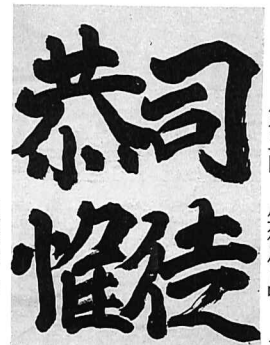 司徒
恭惟